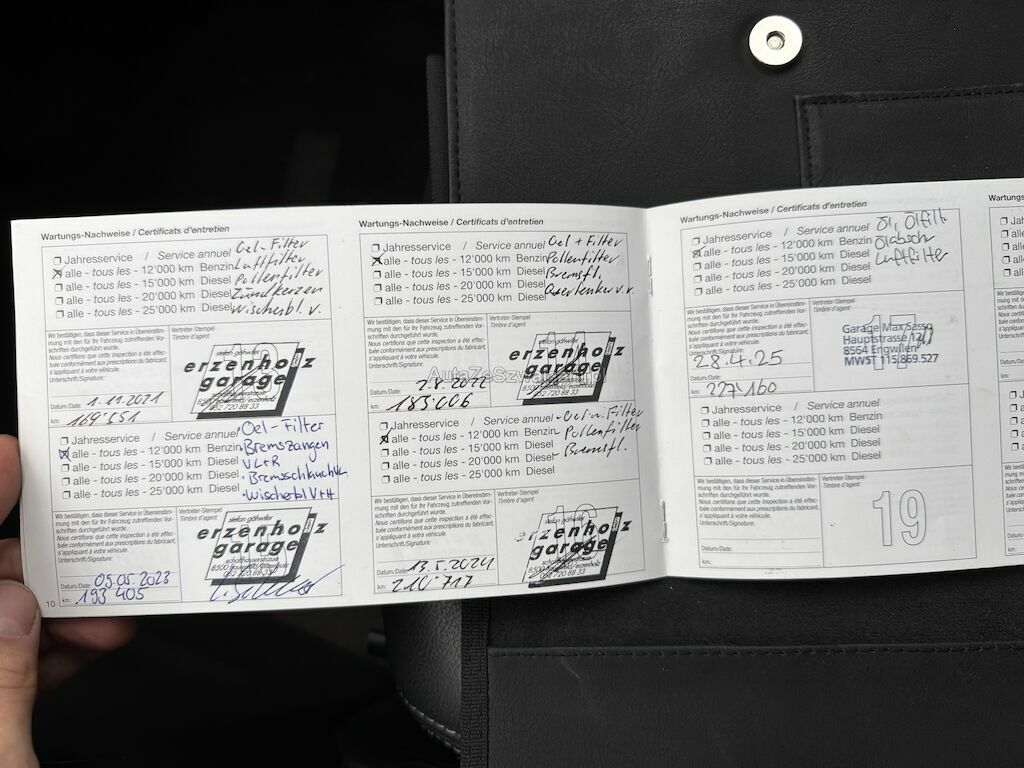 Wartungs-Nachweise / Certificats d'entretien
Jahresservice / Service annuel
alle - tous les - 12'000 km Benzin
alle - tous les - 15'000 km Diesel
alle - tous les - 20'000 km Diesel
alle - tous les - 25'000 km Diesel
Oel-Filter
Luftfilter
Pollenfilter
Zündkerzen
Wischerbl. v.
Wir bestätigen, dass dieser Service in Übereinstim-
mung mit den für Ihr Fahrzeug zutreffenden Vor-
schriften durchgeführt wurde.
Nous certifions que cette inspection a été effec-
tuée conformément aux prescriptions du fabricant,
s'appliquant à votre véhicule.
Unterschrift/Signature:
Vertreter-Stempel
Timbre d'agent
stefan gähwiler
erzenholz
garage
052 720 88 33
Datum/Date: 1.11.2021
km: 169'551
Jahresservice / Service annuel
alle - tous les - 12'000 km Benzin
alle - tous les - 15'000 km Diesel
alle - tous les - 20'000 km Diesel
alle - tous les - 25'000 km Diesel
Oel-Filter
Bremszangen
V L+R
Wischerbl V+H
Wir bestätigen, dass dieser Service in Übereinstim-
mung mit den für Ihr Fahrzeug zutreffenden Vor-
schriften durchgeführt wurde.
Nous certifions que cette inspection a été effec-
tuée conformément aux prescriptions du fabricant,
s'appliquant à votre véhicule.
Unterschrift/Signature:
Vertreter-Stempel
Timbre d'agent
stefan gähwiler
erzenholz
garage
052 720 88 33
Datum/Date: 05.05.2023
km: 193 405
10
Wartungs-Nachweise / Certificats d'entretien
Jahresservice / Service annuel
alle - tous les - 12'000 km Benzin
alle - tous les - 15'000 km Diesel
alle - tous les - 20'000 km Diesel
alle - tous les - 25'000 km Diesel
Oel + Filter
Pollenfilter
Bremsfl.
Querlenker v.v.
Wir bestätigen, dass dieser Service in Übereinstim-
mung mit den für Ihr Fahrzeug zutreffenden Vor-
schriften durchgeführt wurde.
Nous certifions que cette inspection a été effec-
tuée conformément aux prescriptions du fabricant,
s'appliquant à votre véhicule.
Unterschrift/Signature:
Vertreter-Stempel
Timbre d'agent
stefan gähwiler
erzenholz
garage
052 720 88 33
Datum/Date: 2.8.2022
km: 183'006
Jahresservice / Service annuel
alle - tous les - 12'000 km Benzin
alle - tous les - 15'000 km Diesel
alle - tous les - 20'000 km Diesel
alle - tous les - 25'000 km Diesel
Filter
Pollenfilter
Bremsfl.
Wir bestätigen, dass dieser Service in Übereinstim-
mung mit den für Ihr Fahrzeug zutreffenden Vor-
schriften durchgeführt wurde.
Nous certifions que cette inspection a été effec-
tuée conformément aux prescriptions du fabricant,
s'appliquant à votre véhicule.
Unterschrift/Signature:
Vertreter-Stempel
Timbre d'agent
stefan gähwiler
erzenholz
garage
052 720 88 33
Datum/Date: 13.5.2024
km: 210'717
Wartungs-Nachweise / Certificats d'entretien
Jahresservice / Service annuel
alle - tous les - 12'000 km Benzin
alle - tous les - 15'000 km Diesel
alle - tous les - 20'000 km Diesel
alle - tous les - 25'000 km Diesel
Öl, Ölfilt
Luftfilter
Wir bestätigen, dass dieser Service in Übereinstim-
mung mit den für Ihr Fahrzeug zutreffenden Vor-
schriften durchgeführt wurde.
Nous certifions que cette inspection a été effec-
tuée conformément aux prescriptions du fabricant,
s'appliquant à votre véhicule.
Unterschrift/Signature:
Vertreter-Stempel
Timbre d'agent
17
Garage Max Sasso
Hauptstrasse
8564 Engwilen
MWST 115.869.527
28.4.25
Datum/Date:
km: 227160
Jahresservice / Service annuel
alle - tous les - 12'000 km Benzin
alle - tous les - 15'000 km Diesel
alle - tous les - 20'000 km Diesel
alle - tous les - 25'000 km Diesel
Wir bestätigen, dass dieser Service in Übereinstim-
mung mit den für Ihr Fahrzeug zutreffenden Vor-
schriften durchgeführt wurde.
Nous certifions que cette inspection a été effec-
tuée conformément aux prescriptions du fabricant,
s'appliquant à votre véhicule.
Unterschrift/Signature:
Vertreter-Stempel
Timbre d'agent
19
Datum/Date:
km: